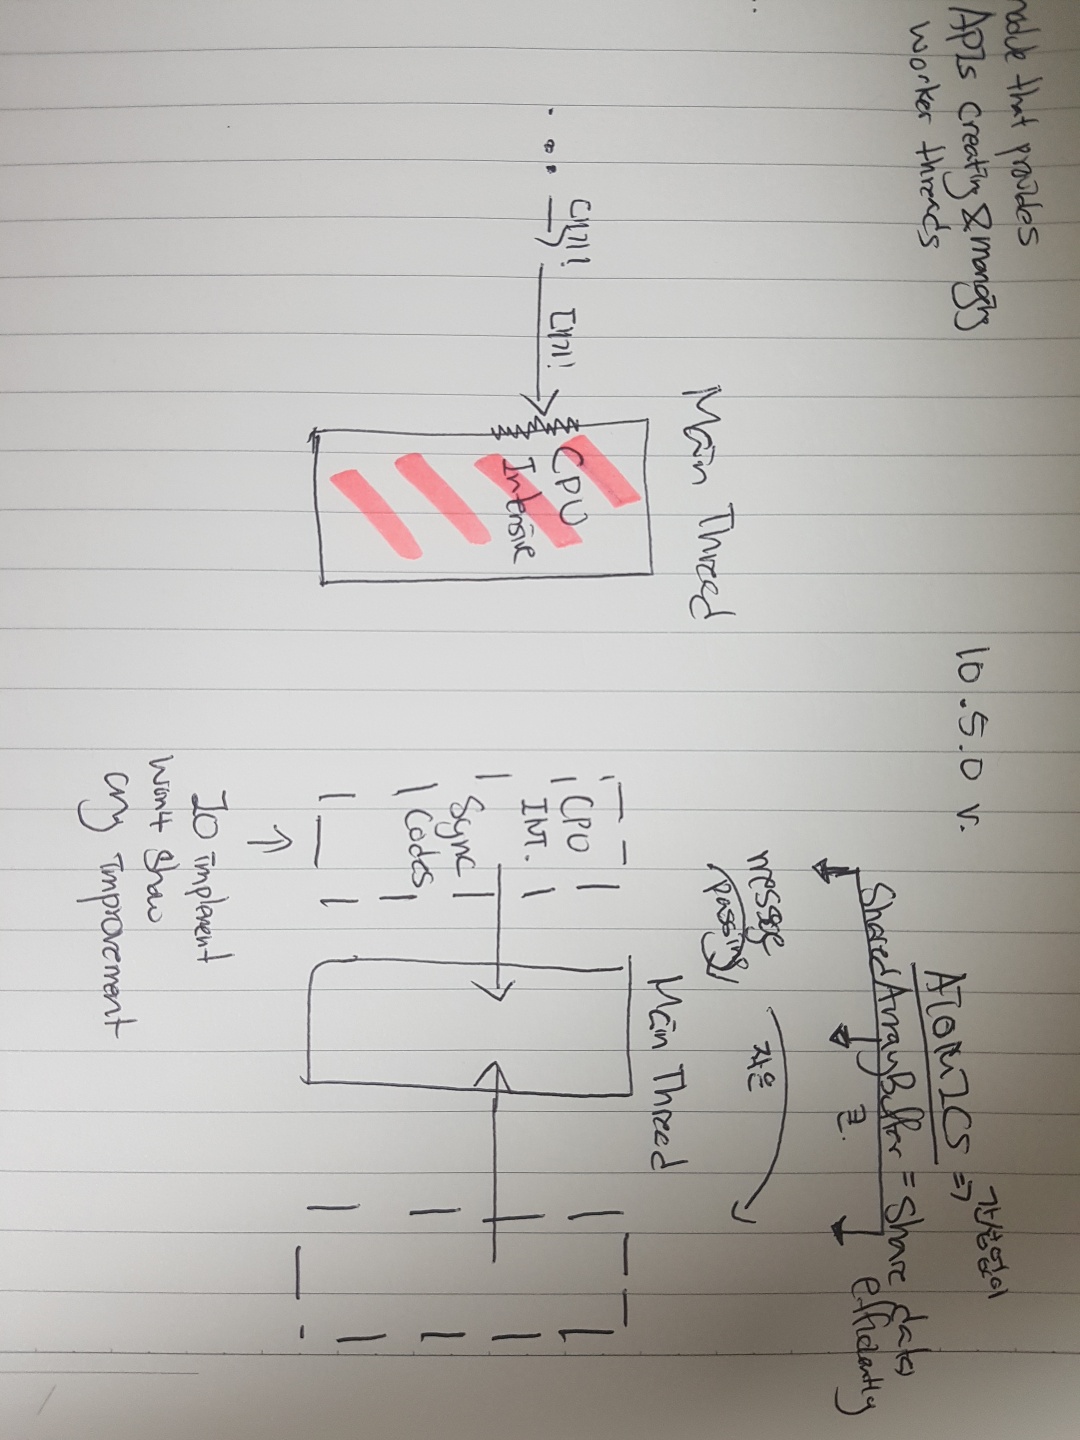 module that provides
APIs creating & managing
worker threads
10.5.0 v.
ATOMICS =>
SharedArrayBuffer = Share data(s)
efficiently
큰.
message
(passing)
작은
Main Thread
대기!
대기!
CPU
Intensive
Main Thread
CPU
INT.
Sync
Codes
IO implement
won't show
any improvement